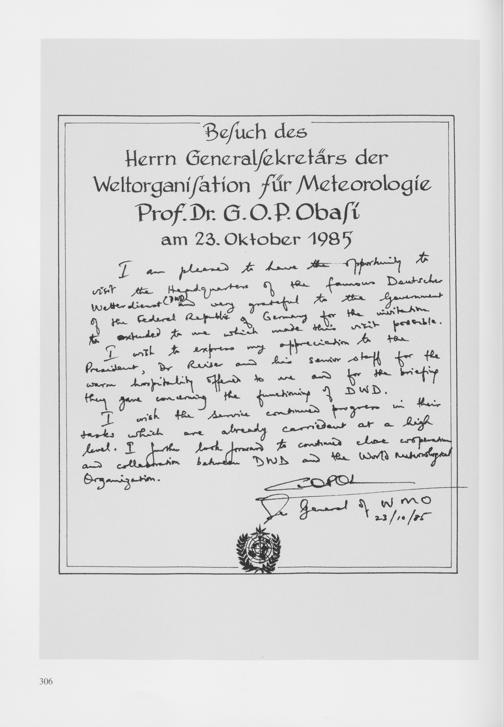 Beſuch des
Herrn Generalſekretärs der
Weltorganiſation für Meteorologie
Prof. Dr. G.O.P. Obaſi
am 23. Oktober 1985
I am pleased to have the opportunity to
visit the Headquarters of the famous Deutscher
Wetterdienst (DWD) and very grateful to the Government
of the Federal Republic of Germany for the invitation
to extended to me which made this visit possible.
I wish to express my appreciation to the
President, Dr Reiser and his senior staff for the
warm hospitality offered to me and for the briefing
they gave concerning the functioning of DWD.
I wish the service continued progress in their
tasks which are already carried out at a high
level. I further look forward to continued close cooperation
and collaboration between DWD and the World Meteorological
Organization.
General of WMO
23/10/85
306